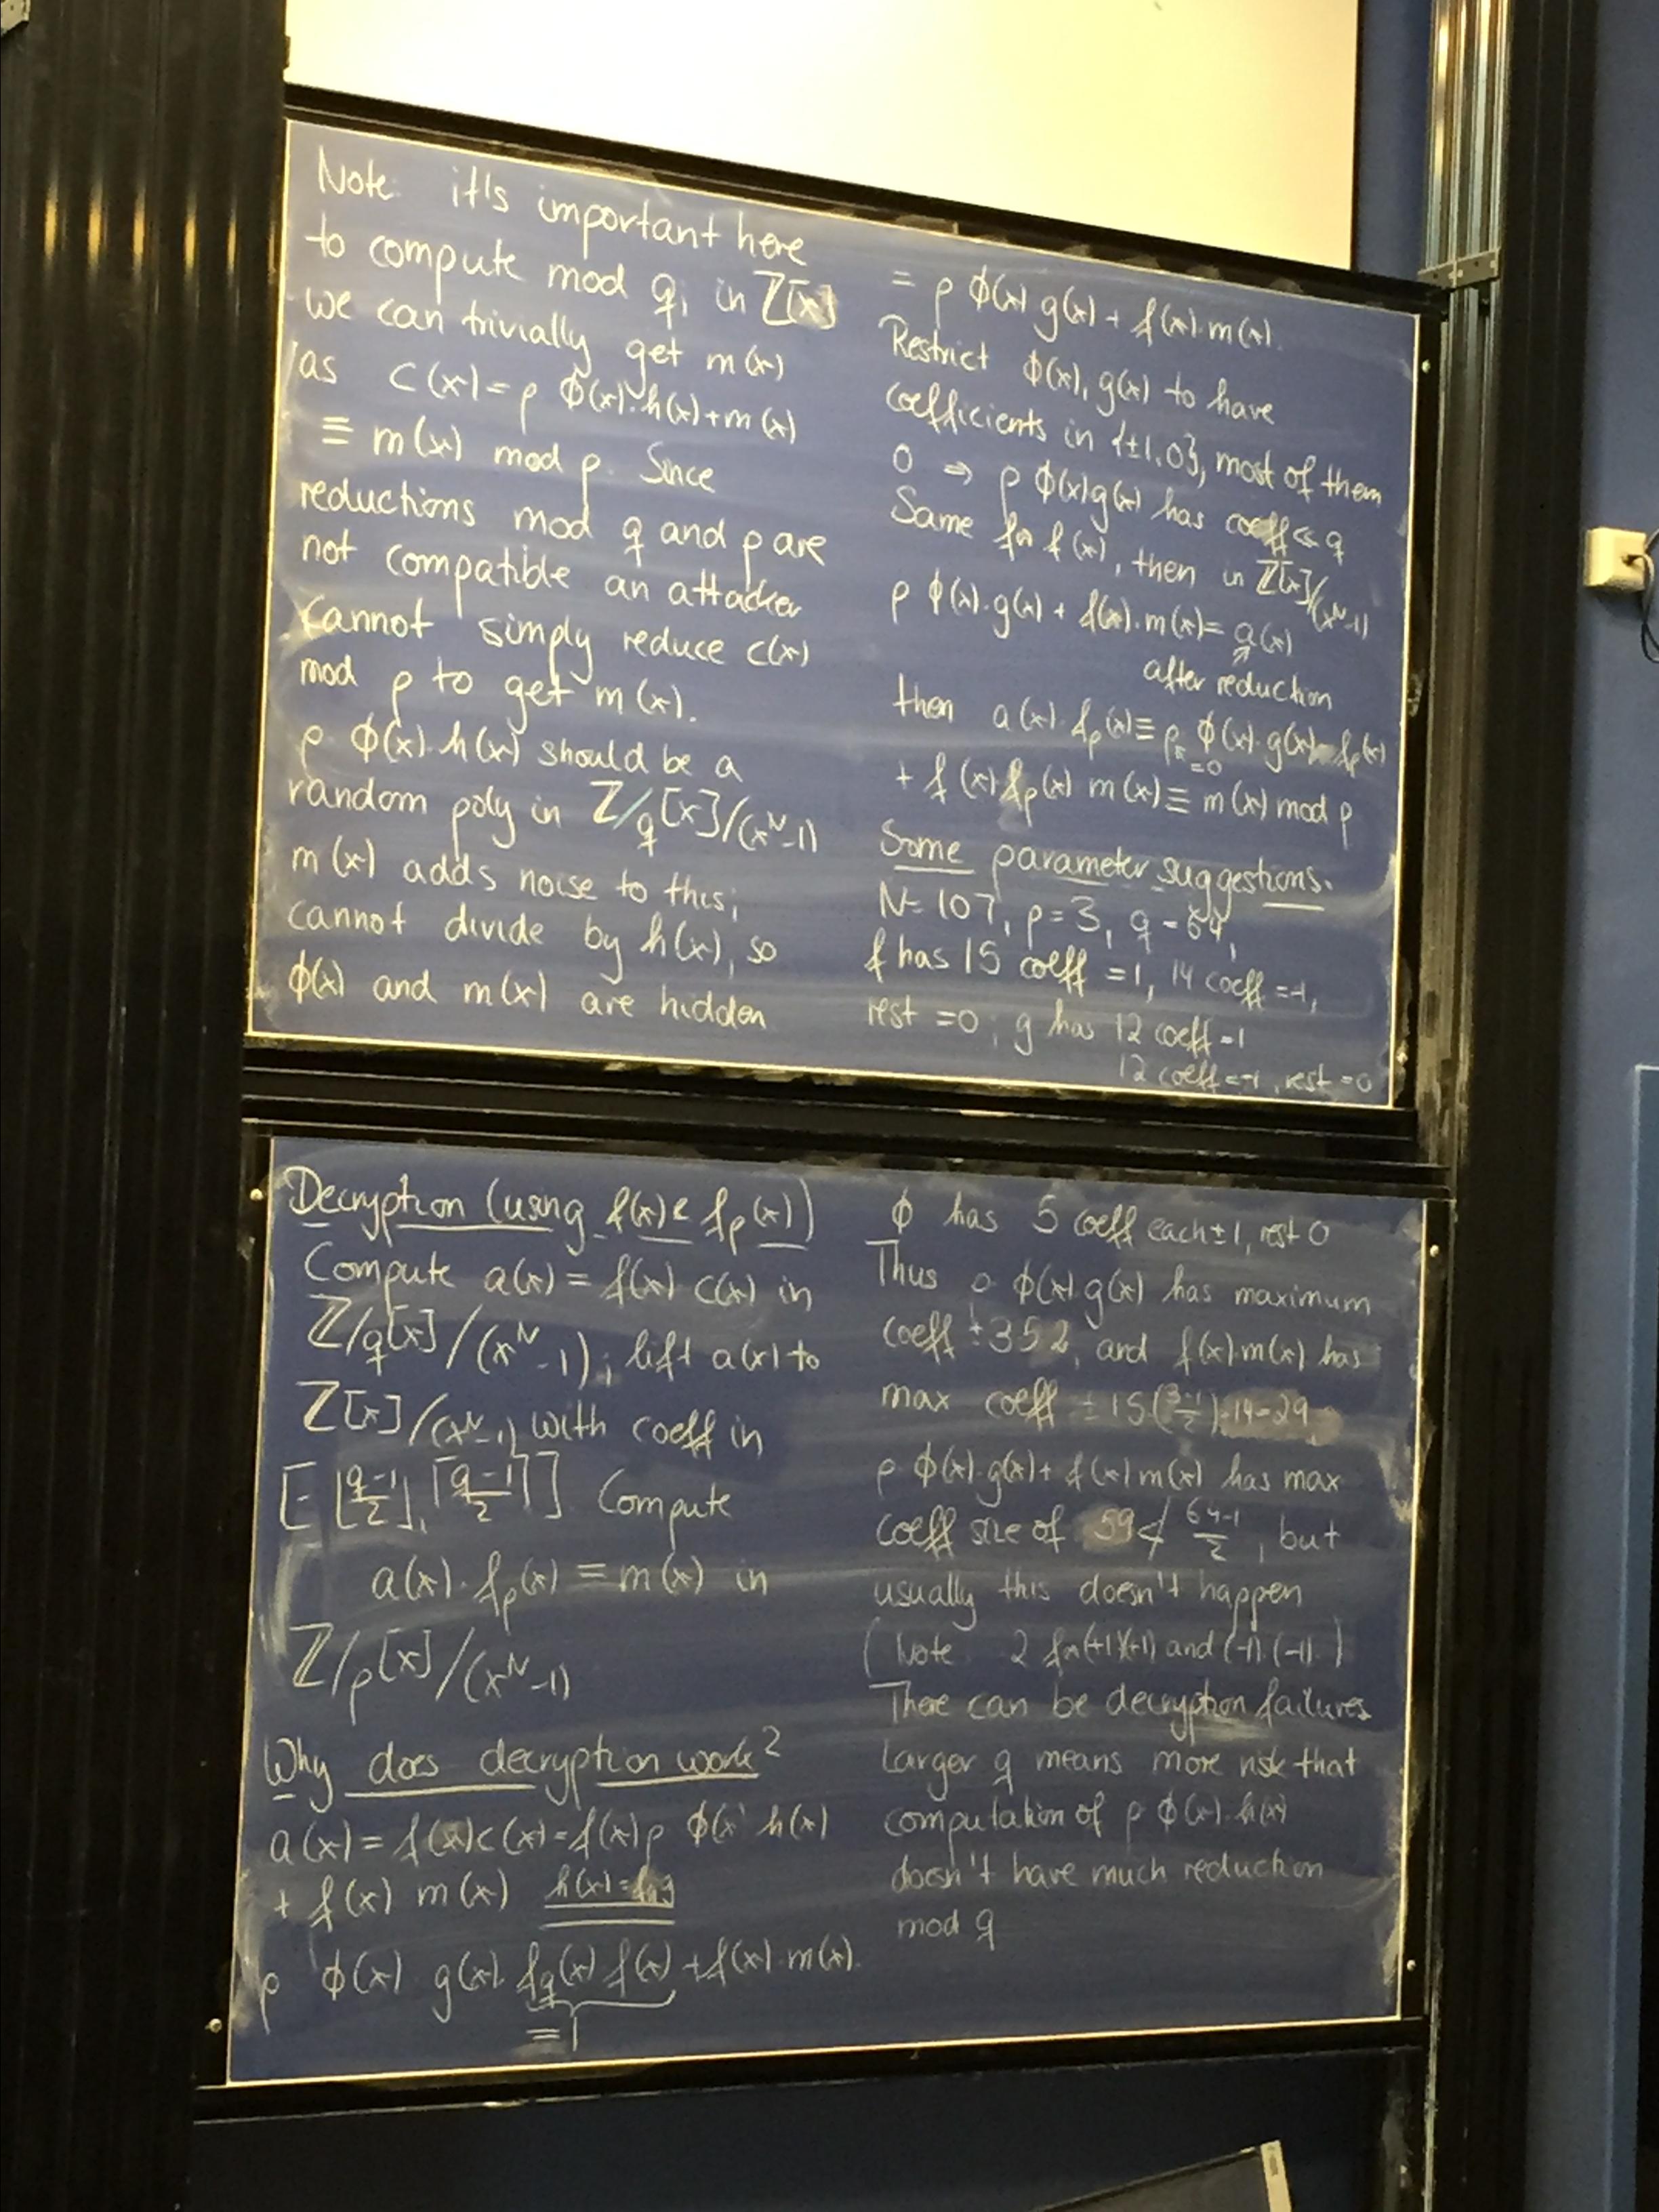 Note it's important here
to compute mod q, in Z[x]
we can trivially get m(x)
as c(x) = p ϕ(x)·h(x)+m(x)
≡ m(x) mod p. Since
reductions mod q and p are
not compatible an attacker
cannot simply reduce c(x)
mod p to get m(x).
p ϕ(x)·h(x) should be a
random poly in Z/q[x]/(x^N-1)
m(x) adds noise to this;
cannot divide by h(x), so
ϕ(x) and m(x) are hidden
= p ϕ(x) g(x) + f(x)·m(x).
Restrict ϕ(x), g(x) to have
coefficients in {±1,0}, most of them
0 ⇒ p ϕ(x)g(x) has coeff ≪ q
Same for f(x), then in Z[x]/(x^N-1)
p ϕ(x)·g(x) + f(x)·m(x) = a(x)
after reduction
then a(x)·f_p(x) ≡ p ϕ(x)·g(x) f_p(x)
≡0
+ f(x) f_p(x) m(x) ≡ m(x) mod p
Some parameter suggestions.
N=107, p=3, q=64,
f has 15 coeff =1, 14 coeff =-1,
rest =0; g has 12 coeff =1
12 coeff =-1, rest =0
Decryption (using f(x) & f_p(x))
Compute a(x) = f(x) c(x) in
Z/q[x]/(x^N-1); lift a(x) to
Z[x]/(x^N-1) with coeff in
[-⌊(q-1)/2⌋, ⌈(q-1)/2⌉] Compute
a(x)·f_p(x) ≡ m(x) in
Z/p[x]/(x^N-1)
Why does decryption work?
a(x) = f(x)c(x) = f(x)p ϕ(x) h(x)
+ f(x) m(x) h(x)=f_q g
p ϕ(x) g(x) f_q(x) f(x) + f(x)·m(x).
=1
ϕ has 5 coeff each ±1, rest 0
Thus p ϕ(x) g(x) has maximum
coeff ±3 5 2, and f(x)·m(x) has
max coeff ±15((3-1)/2)+14=29
p ϕ(x)·g(x) + f(x)m(x) has max
coeff size of 59 ≮ (64-1)/2, but
usually this doesn't happen
(Note 2 for (+1)(+1) and (-1)·(-1).)
There can be decryption failures
Larger q means more risk that
computation of p ϕ(x)·h(x)
doesn't have much reduction
mod q